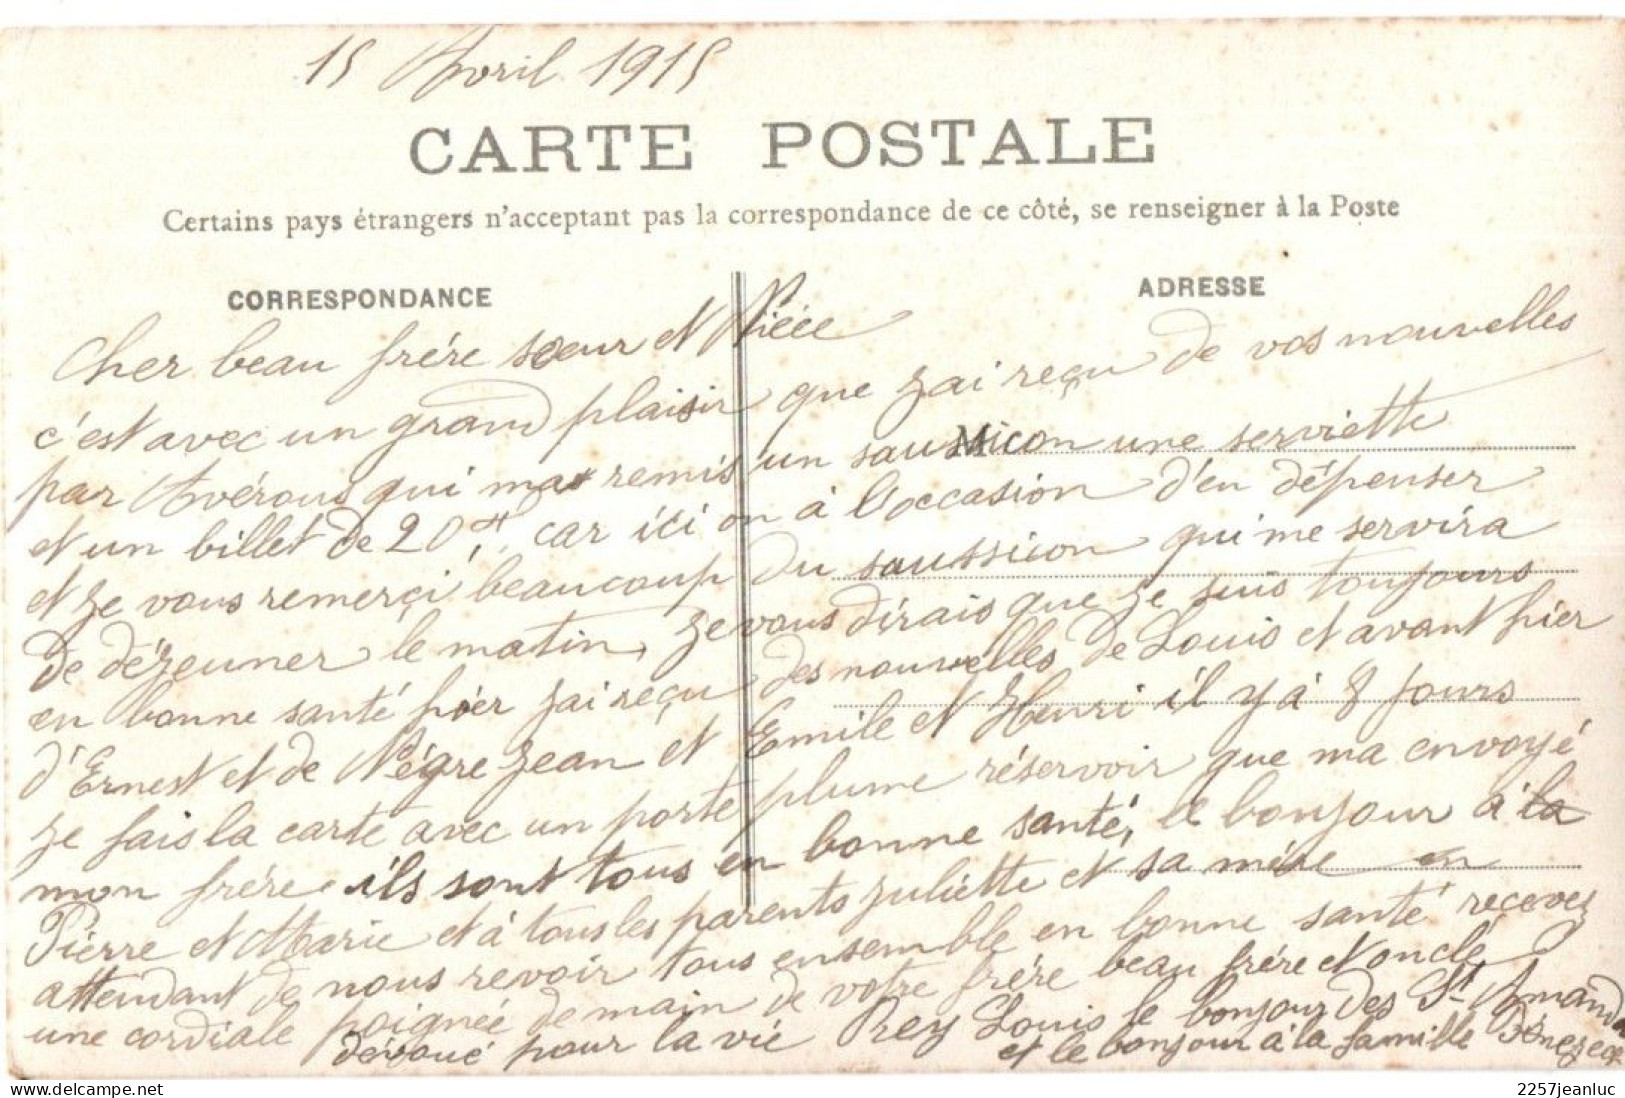 15 Avril 1915
CARTE POSTALE
Certains pays étrangers n'acceptant pas la correspondance de ce côté, se renseigner à la Poste
CORRESPONDANCE
ADRESSE
Cher beau frére sœur et Niéce
c'est avec un grand plaisir que j'ai reçu de vos nouvelles
par Avérous qui ma remis un saussicon une serviette
et un billet de 20f, car ici on à l'occasion d'en dépenser
et je vous remerçi beaucoup du saussicon qui me servira
de déjeuner le matin, je vous dirais que je suis toujours
en bonne santé hier j'ai reçu des nouvelles de Louis et avant hier
d'Ernest et de Négre Jean et Emile et Henri il y à 8 jours
je fais la carte avec un porte plume réservoir que ma envoyé
mon frére ils sont tous en bonne santé, le bonjour à la
Piérre et Marie et à tous les parents Juliétte et sa mére en
attendant de nous revoir tous ensemble en bonne santé recevez
une cordiale poignée de main de votre frére beau frére et oncle
dévoué pour la vie Rey Louis le bonjour des St Amand
et le bonjour à la famille
2257jeanluc
www.delcampe.net